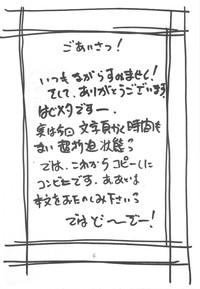 ごあいさつ!
いつもながらすみません!
そして、ありがとうございます
はじメタですー。
実は今回 文字頁かく時間も
ない 超切迫状態っ
では、これからコピーしに
コンビニです。ああいは
本文をおたのしみ下さいっ
ではど〜ぞー!
6